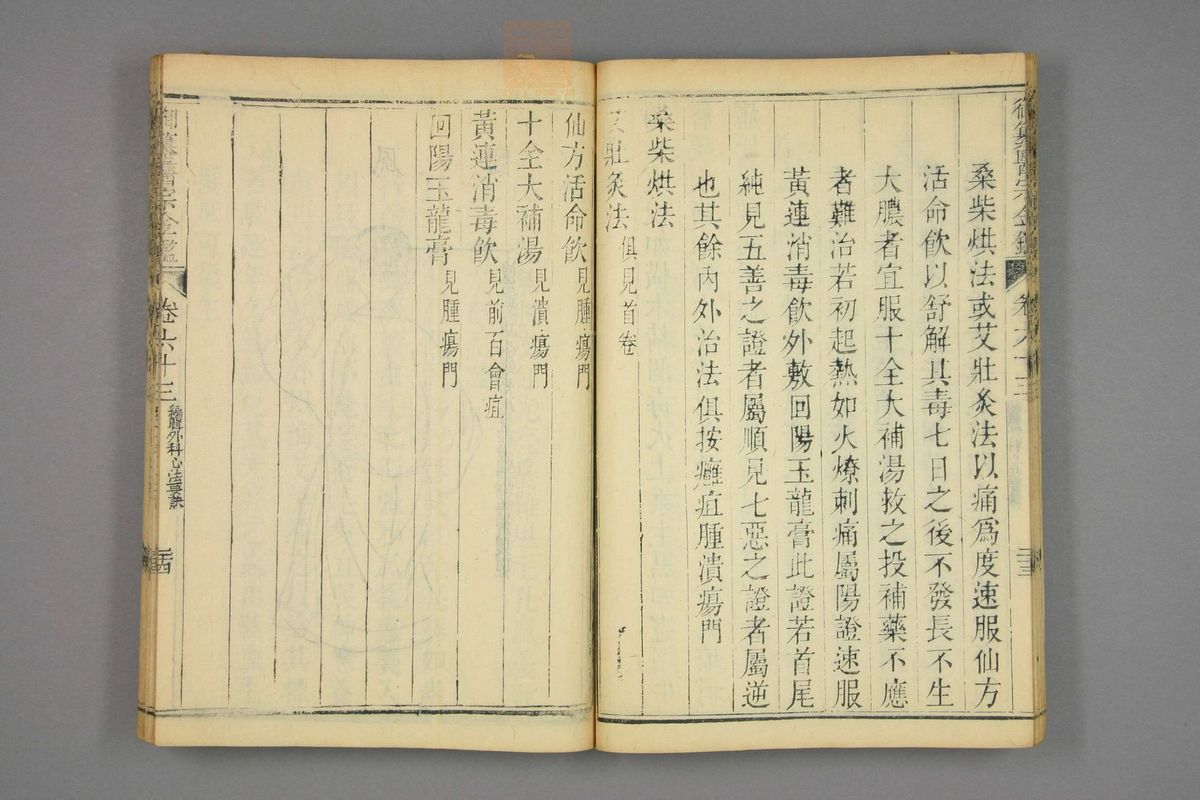 桑柴烘法或艾壯灸法以痛為度速服仙方
活命飲以舒解其毒七日之後不發長不生
大膿者宜服十全大補湯救之投補藥不應
者難治若初起熱如火燎刺痛屬陽證速服
黃連消毒飲外敷回陽玉龍膏此證若首尾
純見五善之證者屬順見七惡之證者屬逆
也其餘內外治法俱按癰疽腫潰瘍門
桑柴烘法
艾壯灸法俱見首卷
仙方活命飲見腫瘍門
十全大補湯見潰瘍門
黃連消毒飲見前百會疽
回陽玉龍膏見腫瘍門
御纂醫宗金鑑
卷六十三
編輯外科心法要訣
二十四